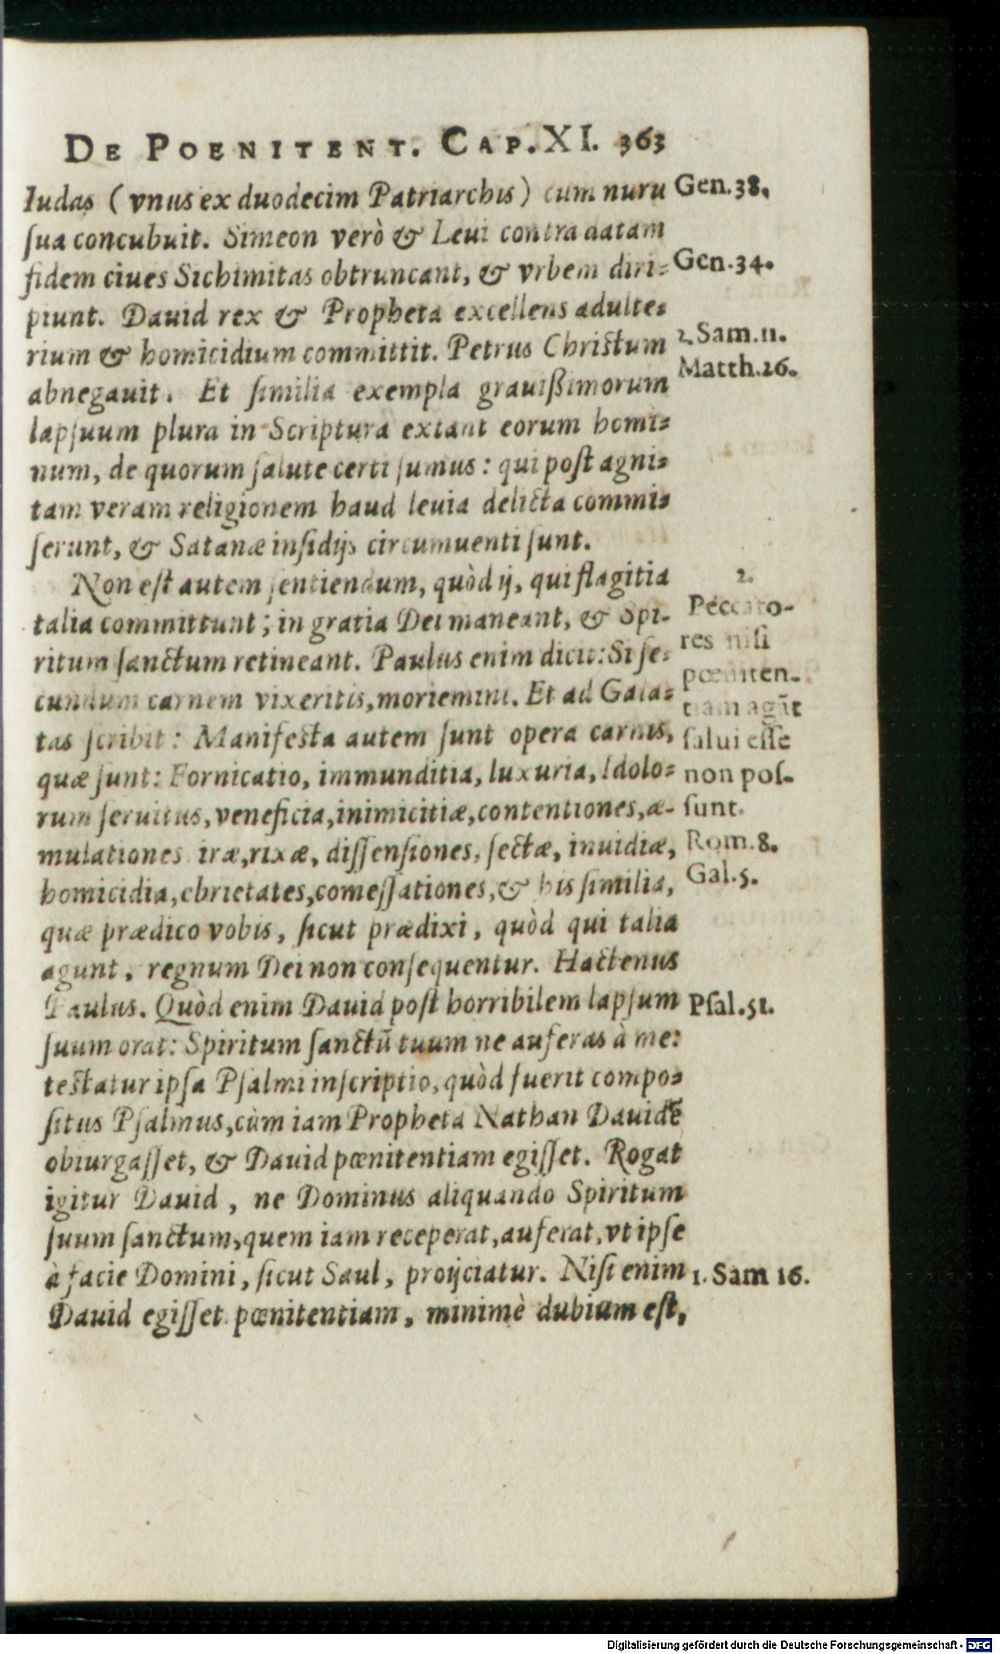 DE POENITENT. CAP. XI. 363
Iudas (vnus ex duodecim Patriarchis) cum nuru
sua concubuit. Simeon verò & Leui contra datam
fidem ciues Sichimitas obtruncant, & vrbem diri-
piunt. Dauid rex & Propheta excellens adulte-
rium & homicidium committit. Petrus Christum
abnegauit. Et similia exempla grauißimorum
lapsuum plura in Scriptura extant eorum homi-
num, de quorum salute certi sumus: qui post agni-
tam veram religionem haud leuia delicta commi-
serunt, & Satanæ insidijs circumuenti sunt.
Non est autem sentiendum, quòd ij, qui flagitia
talia committunt; in gratia Dei maneant, & Spi-
ritum sanctum retineant. Paulus enim dicit: Si se-
cundum carnem vixeritis, moriemini. Et ad Gala-
tas scribit: Manifesta autem sunt opera carnis,
quæ sunt: Fornicatio, immunditia, luxuria, Idolo-
rum seruitus, veneficia, inimicitiæ, contentiones, æ-
mulationes iræ, rixæ, dissensiones, sectæ, inuidiæ,
homicidia, ebrietates, comessationes, & his similia,
quæ prædico vobis, sicut prædixi, quòd qui talia
agunt, regnum Dei non consequentur. Hactenus
Paulus. Quòd enim Dauid post horribilem lapsum
suum orat: Spiritum sanctū tuum ne auferas à me:
testatur ipsa Psalmi inscriptio, quòd fuerit compo-
situs Psalmus, cùm iam Propheta Nathan Dauidē
obiurgasset, & Dauid pœnitentiam egisset. Rogat
igitur Dauid, ne Dominus aliquando Spiritum
suum sanctum, quem iam receperat, auferat, vt ipse
à facie Domini, sicut Saul, proijciatur. Nisi enim
Dauid egisset pœnitentiam, minimè dubium est,
Gen. 38.
Gen. 34.
2. Sam. 11.
Matth. 26.
2.
Peccato-
res nisi
pœniten-
tiam agāt
salui esse
non pos-
sunt.
Rom. 8.
Gal. 5.
Psal. 51.
1. Sam 16.
Digitalisierung gefördert durch die Deutsche Forschungsgemeinschaft - DFG